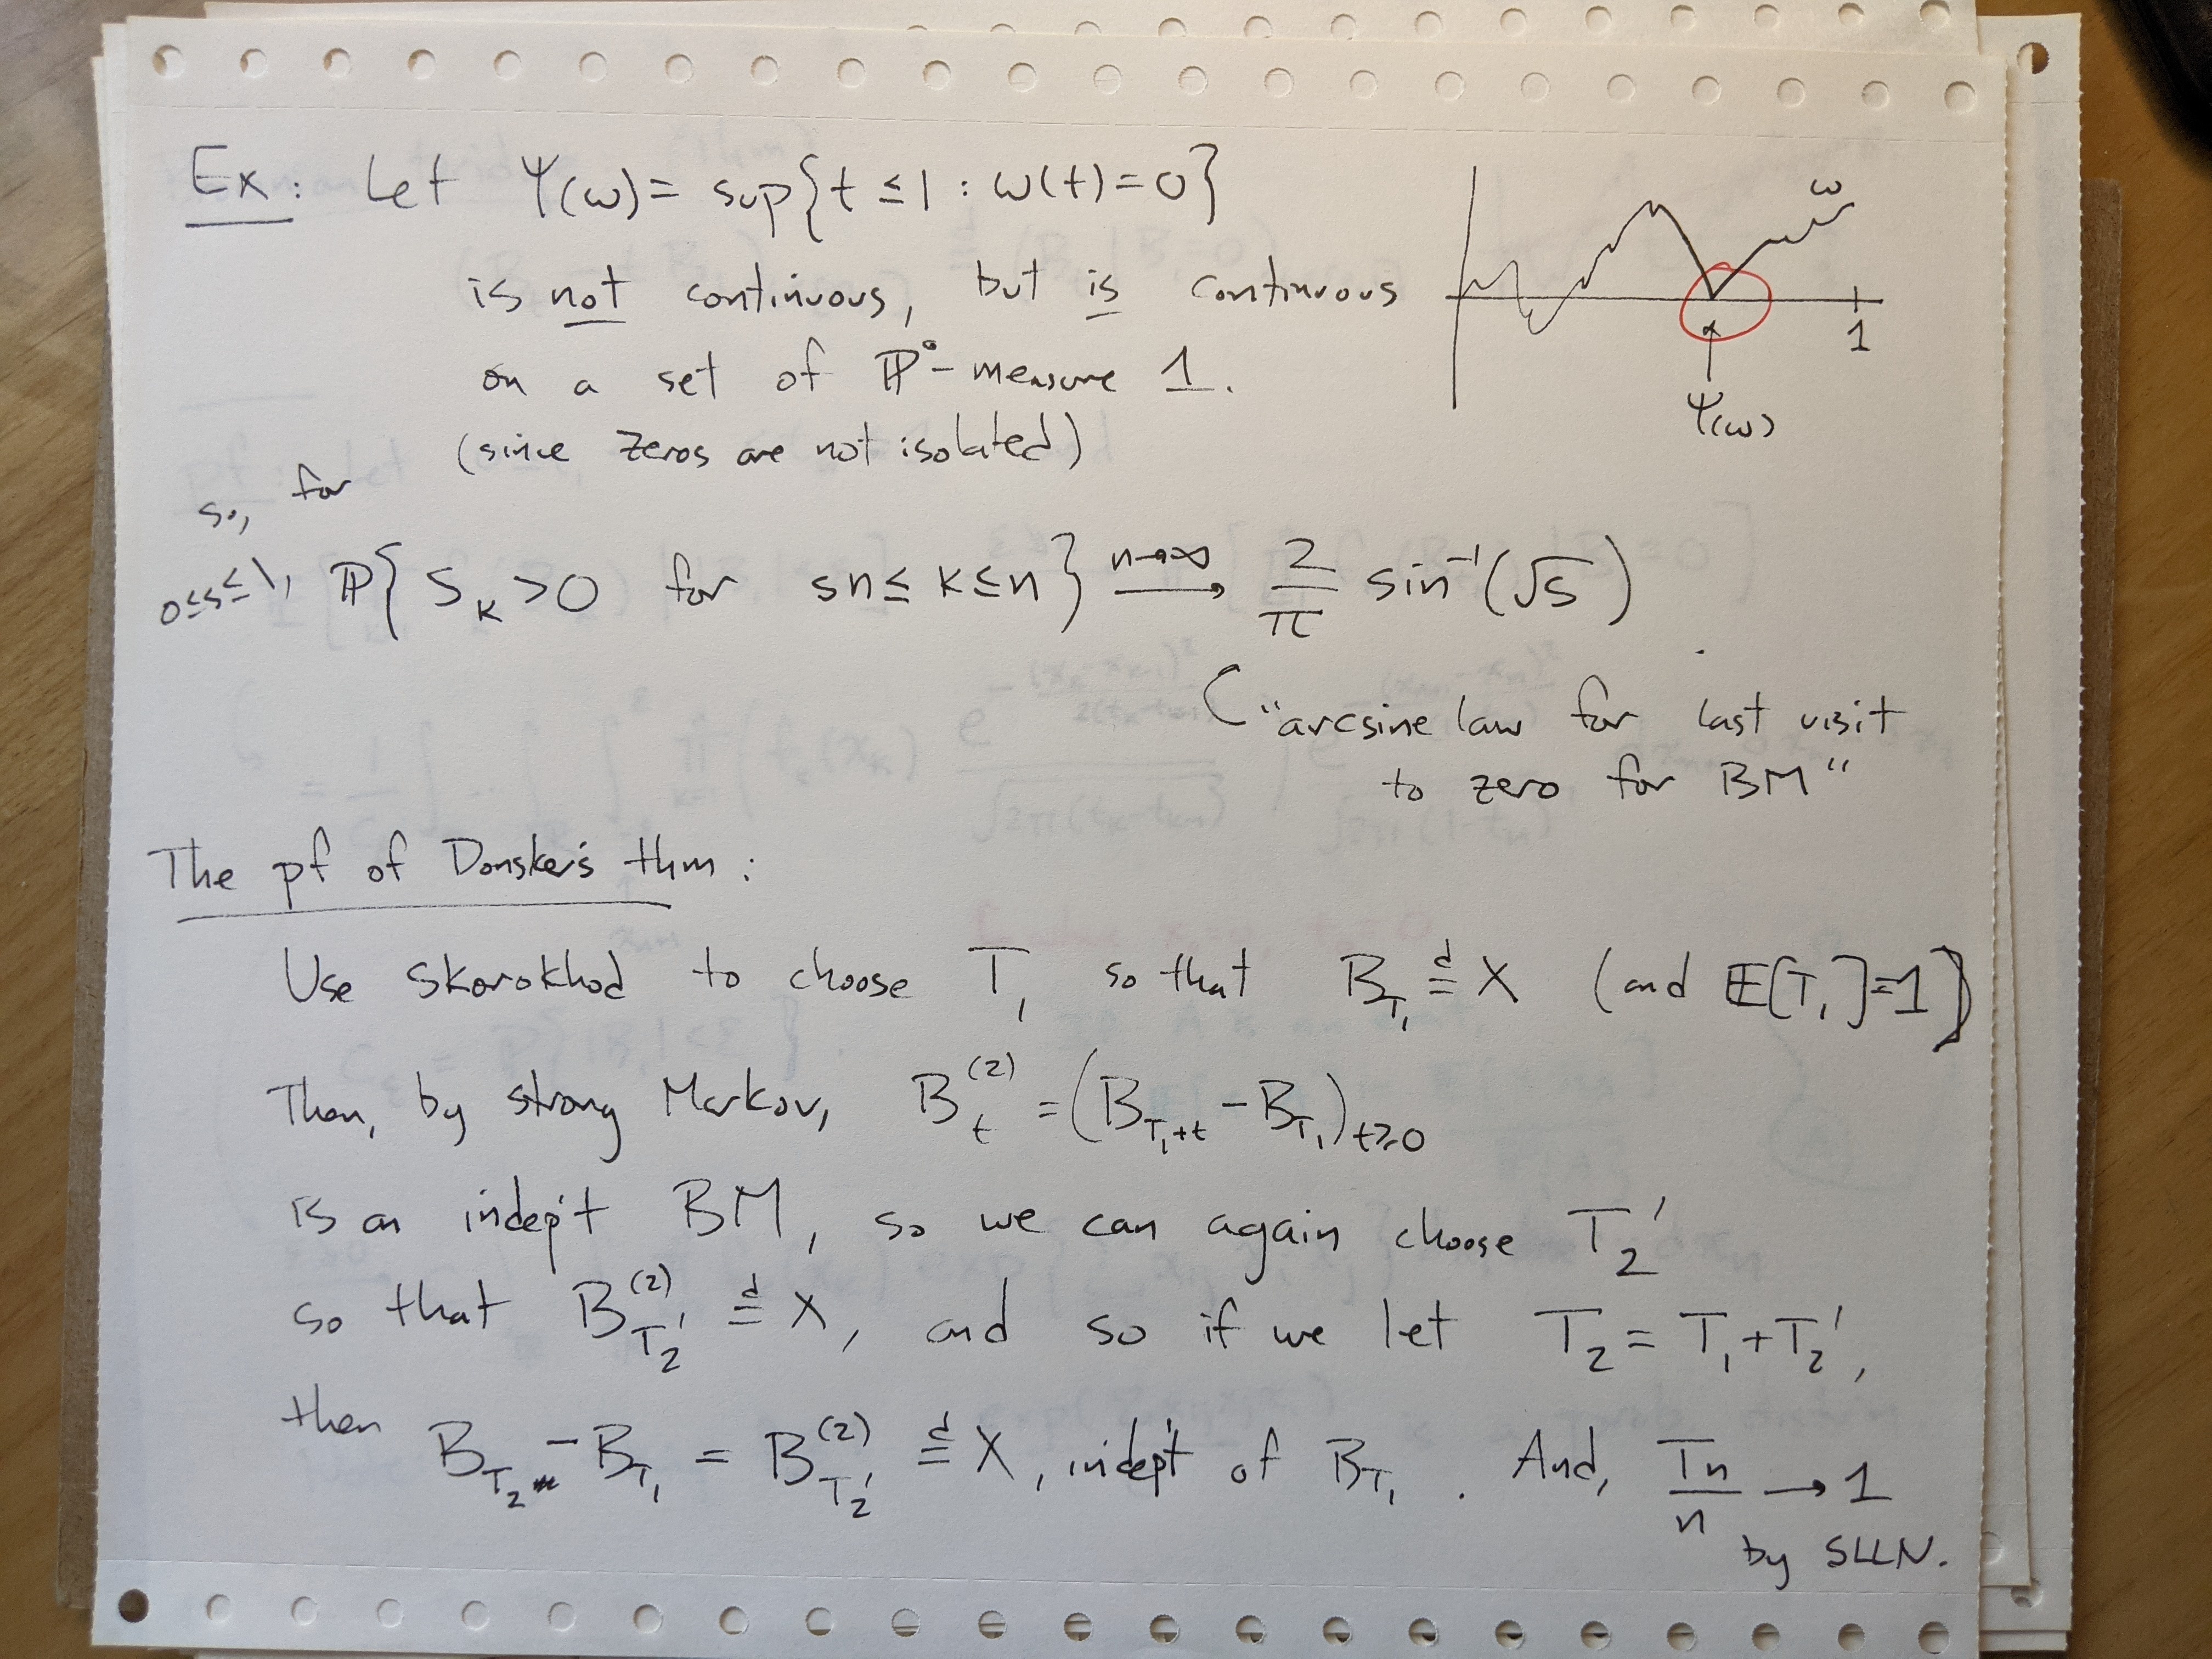 Ex: Let Ψ(ω) = sup{t ≤ 1 : ω(t) = 0}
is not continuous, but is continuous
on a set of ℙ⁰-measure 1.
(since zeros are not isolated)
ω
1
Ψ(ω)
so, for
0≤s≤1, ℙ{ S_k > 0 for sn ≤ k ≤ n } →^{n→∞} 2/π sin⁻¹(√s)
("arcsine law for last visit
to zero for BM"
The pf of Donsker's thm:
Use Skorokhod to choose T₁ so that B_{T₁} =^d X (and 𝔼[T₁]=1)
Then, by strong Markov, B_t^{(2)} = (B_{T₁+t} - B_{T₁})_{t≥0}
is an indep't BM, so we can again choose T₂'
so that B^{(2)}_{T₂'} =^d X, and so if we let T₂ = T₁+T₂',
then B_{T₂} - B_{T₁} = B^{(2)}_{T₂'} =^d X, indep't of B_{T₁}. And, T_n/n → 1
by SLLN.